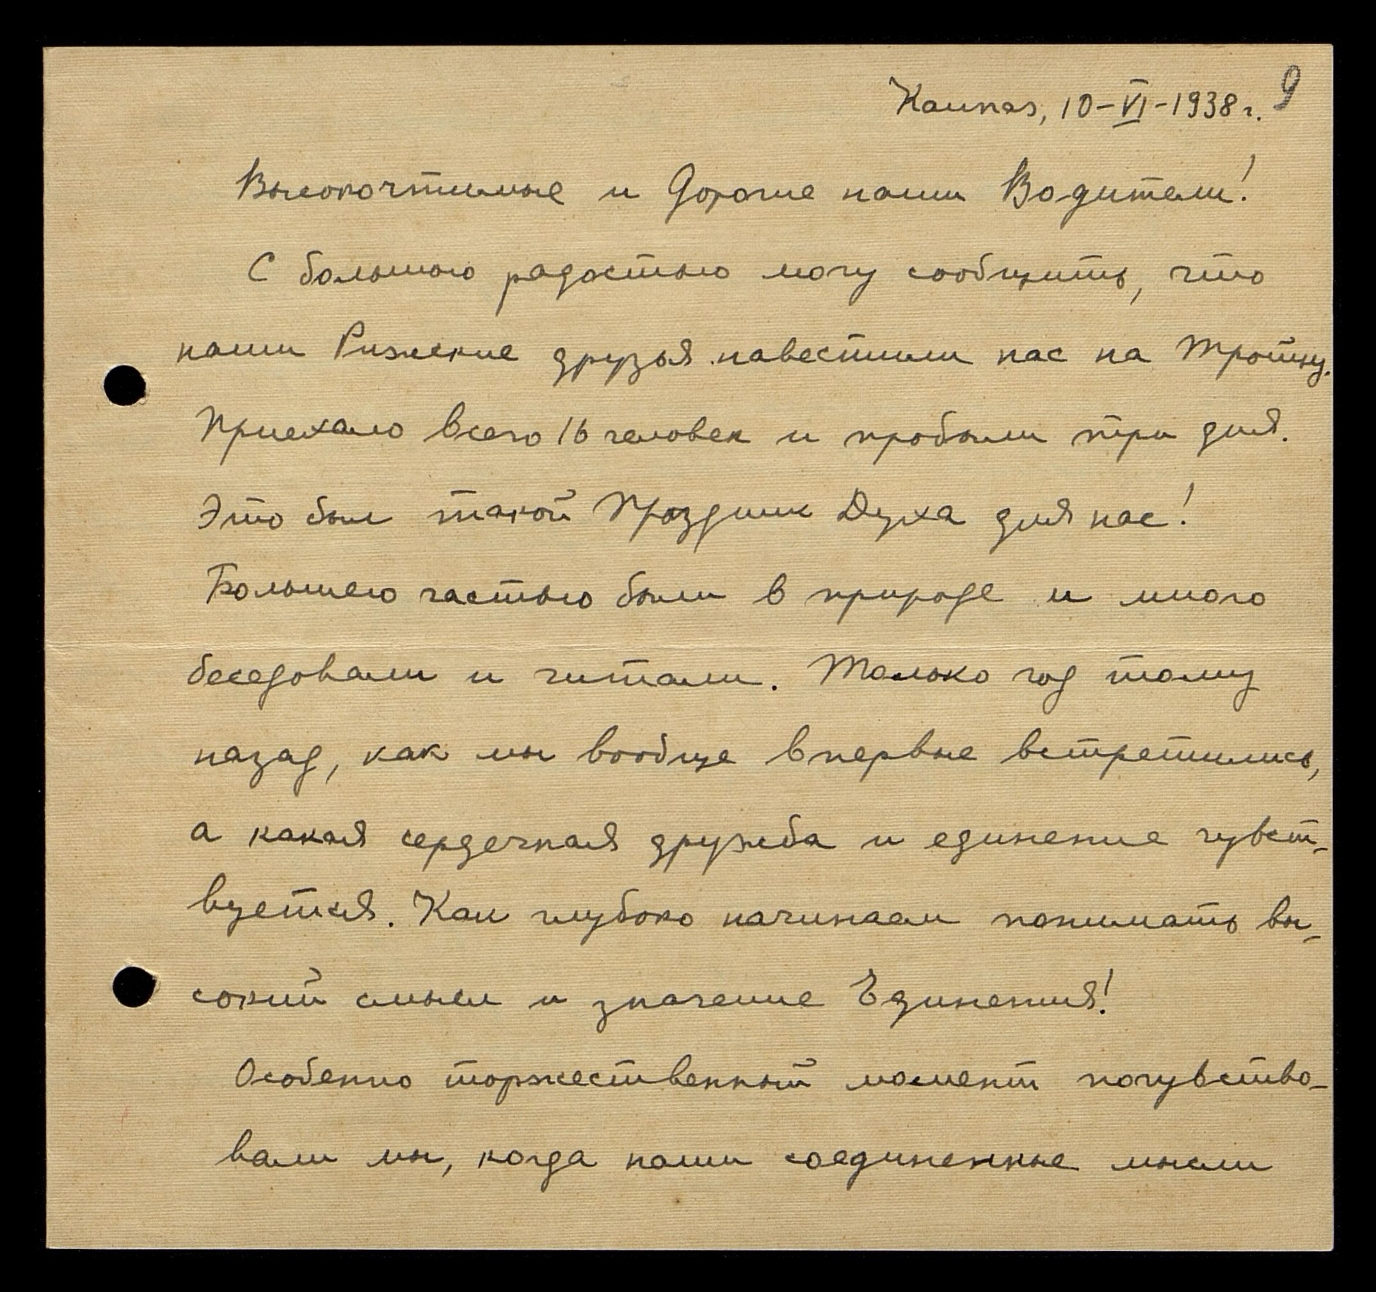 Каунас, 10-VI-1938 г. 9
Высокочтимые и Дорогие наши Водители!
С большою радостью могу сообщить, что
наши Рижские друзья навестили нас на Троицу.
Приехало всего 16 человек и пробыли три дня.
Это был такой Праздник Духа для нас!
Большею частью были в природе и много
беседовали и читали. Только год тому
назад, как мы вообще впервые встретились,
а какая сердечная дружба и единение чувст-
вуется. Как глубоко начинаем понимать вы-
сокий смысл и значение Единения!
Особенно торжественный момент почувство-
вали мы, когда наши соединенные мысли